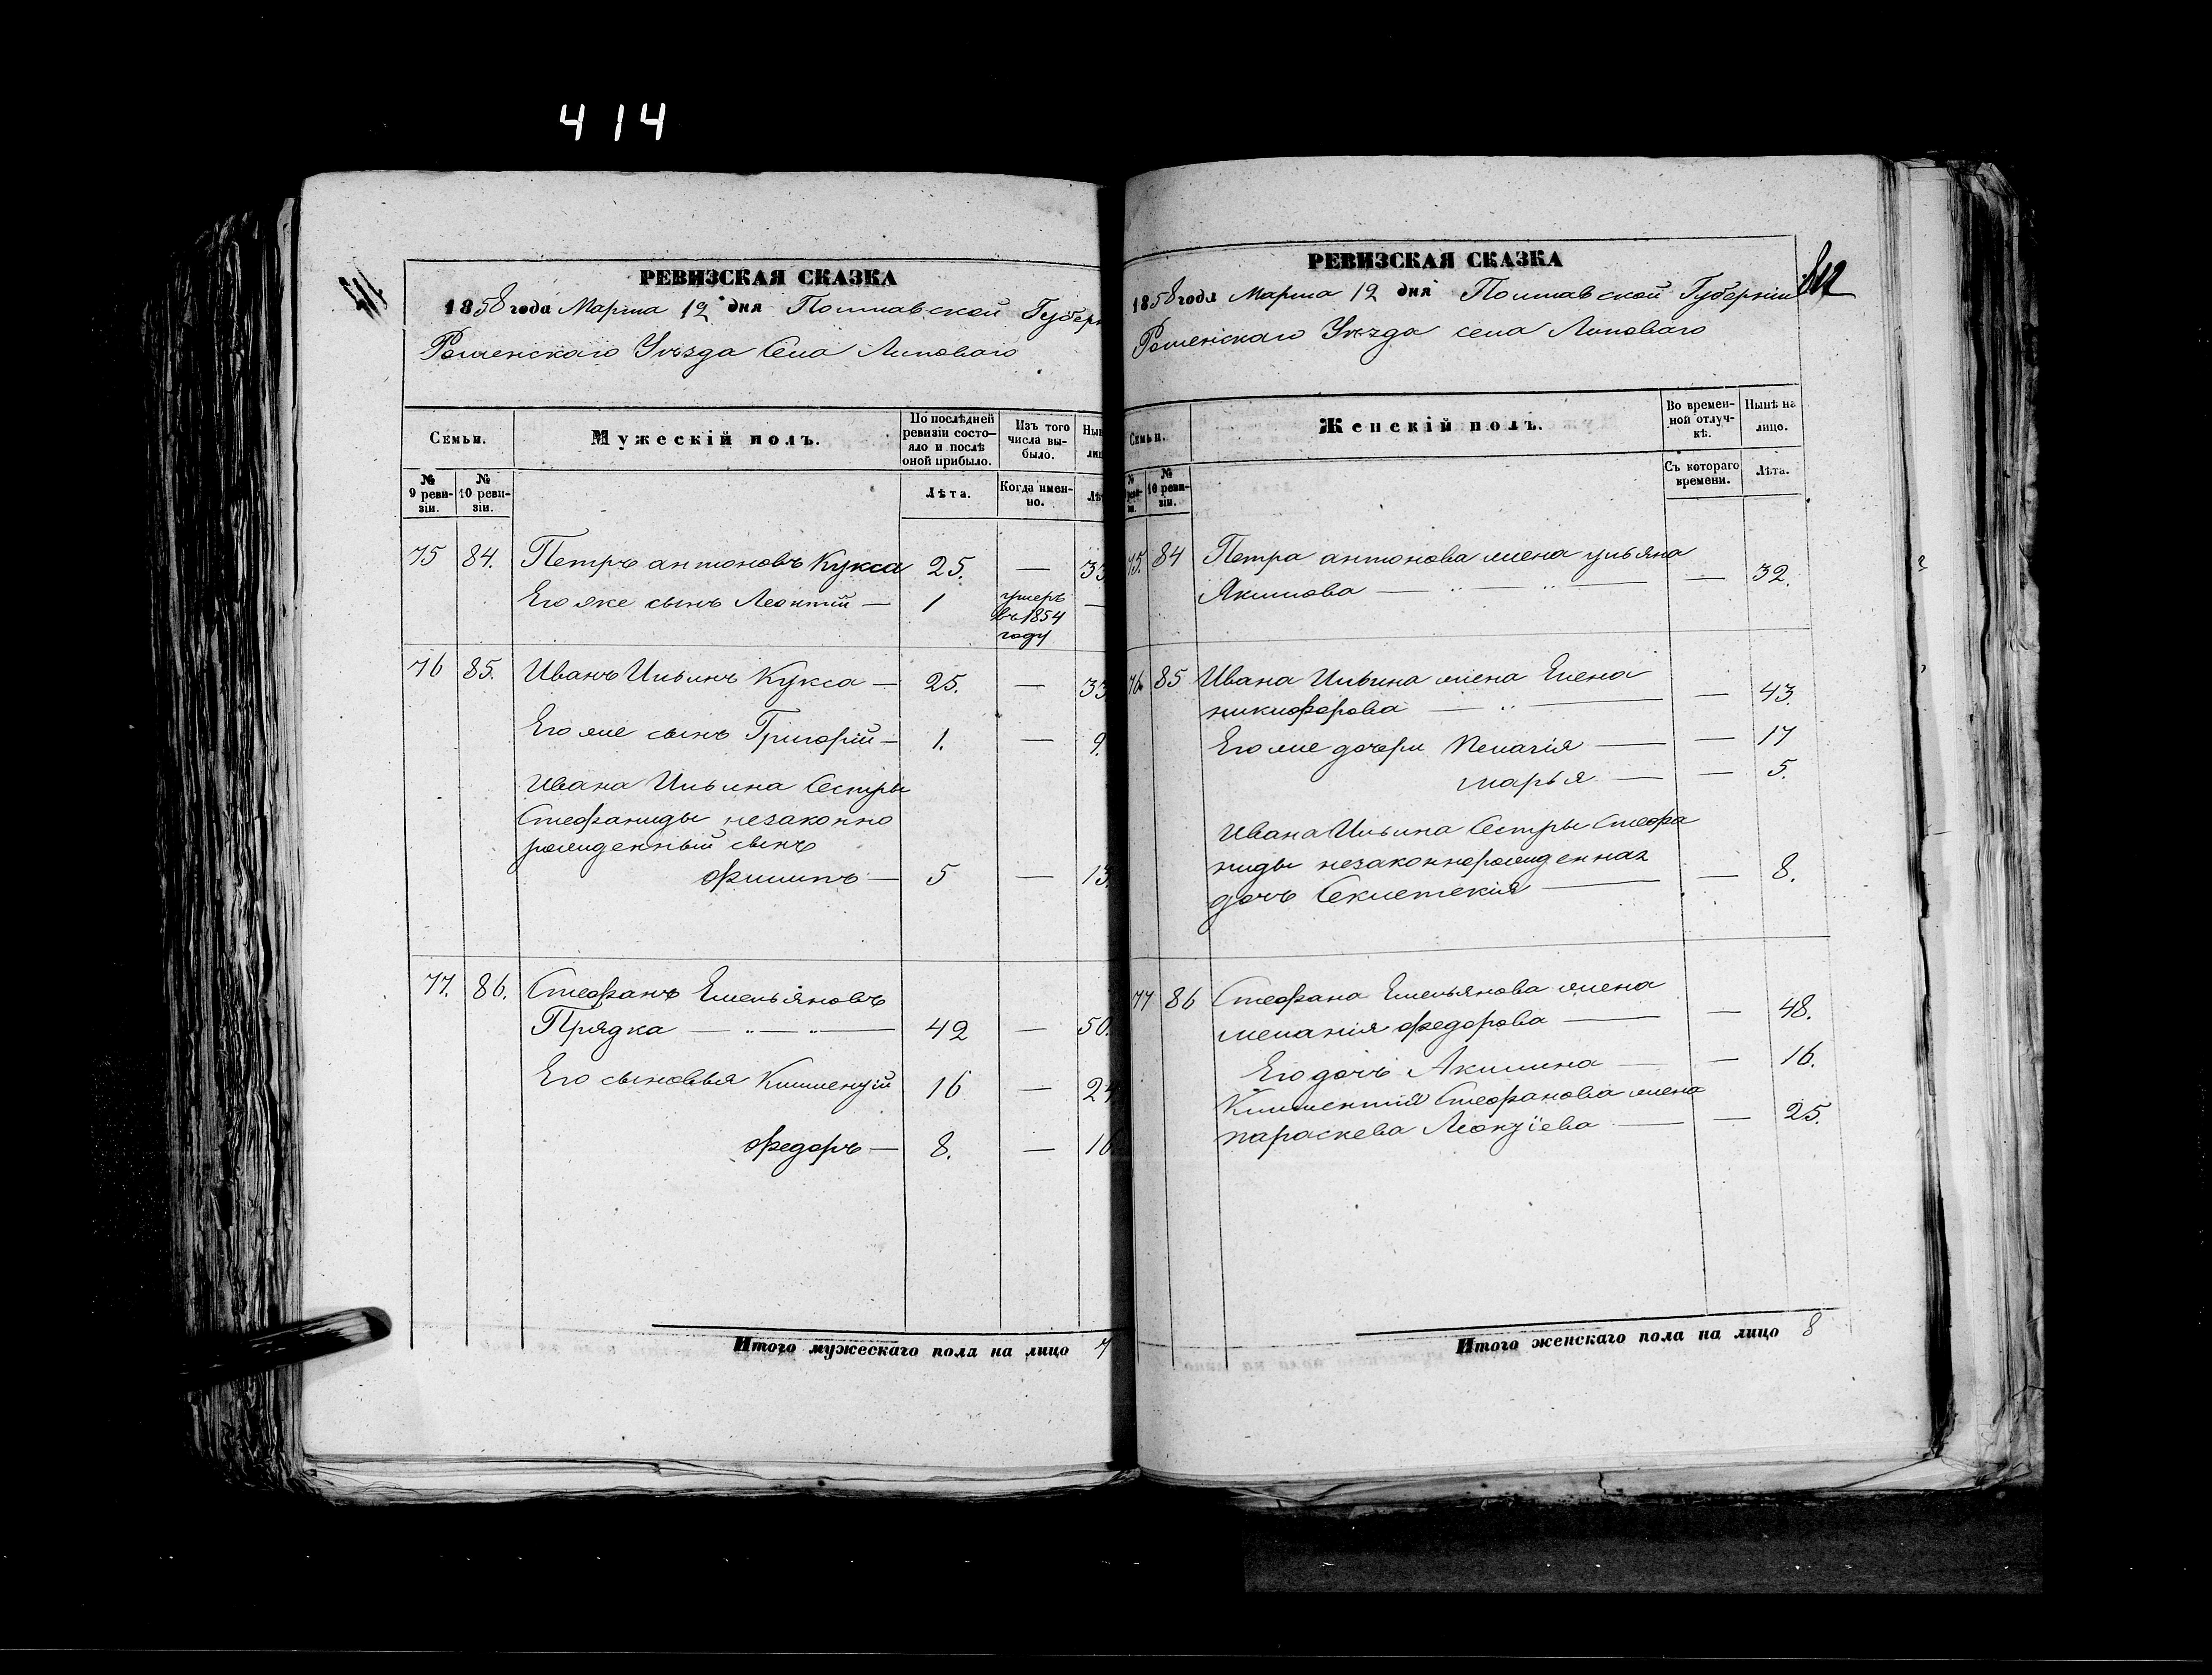 414
РЕВИЗСКАЯ СКАЗКА
1858 года Марта 12 дня Полтавской Губер
Роменскаго Уѣзда Села Липоваго
Семьи.
Мужескій полъ.
По послѣдней ревизіи состо-
яло и послѣ оной прибыло.
Изъ того числа вы-
было.
Нын
лиц
№ 9 реви-
зіи.
№ 10 реви-
зіи.
Лѣта.
Когда имен-
но.
Лѣ
75 84. Петръ антоновъ Кукса 25. — 33
Его же сынъ Леонтій — 1 умеръ въ 1854 году —
76 85. Иванъ Ильинъ Кукса — 25. — 33
Его же сынъ Григорій — 1. — 9.
Ивана Ильина Сестры
Стефаниды незаконно
рожденный сынъ
Филипъ — 5 — 13.
77. 86. Стефанъ Емельяновъ
Прядка — 42 — 50.
Его сыновья Климентій 16 — 24
Федоръ — 8. — 16
Итого мужескаго пола на лицо 7
РЕВИЗСКАЯ СКАЗКА
1858 года Марта 12 дня Полтавской Губерніи
Роменскаго Уѣзда села Липоваго
Семьи.
Женскій полъ.
Во времен-
ной отлуч-
кѣ.
Нынѣ на
лицо.
№
10 реви-
зіи.
Съ котораго
времени.
Лѣта.
75. 84 Петра антонова жена ульяна
Якимова — — 32.
76. 85 Ивана Ильина жена Елена
никифорова — — 43.
Его же дочери Пелагія — — 17
марья — — 5.
Ивана Ильина Сестры Стефа
ниды незаконнорожденная
дочь Секлетекія — — 8.
77 86 Стефана Емельянова жена
меланія федорова — — 48.
Его дочь Акилина — — 16.
Климентія Стефанова жена
параскева Леонтіева — — 25.
Итого женскаго пола на лицо 8